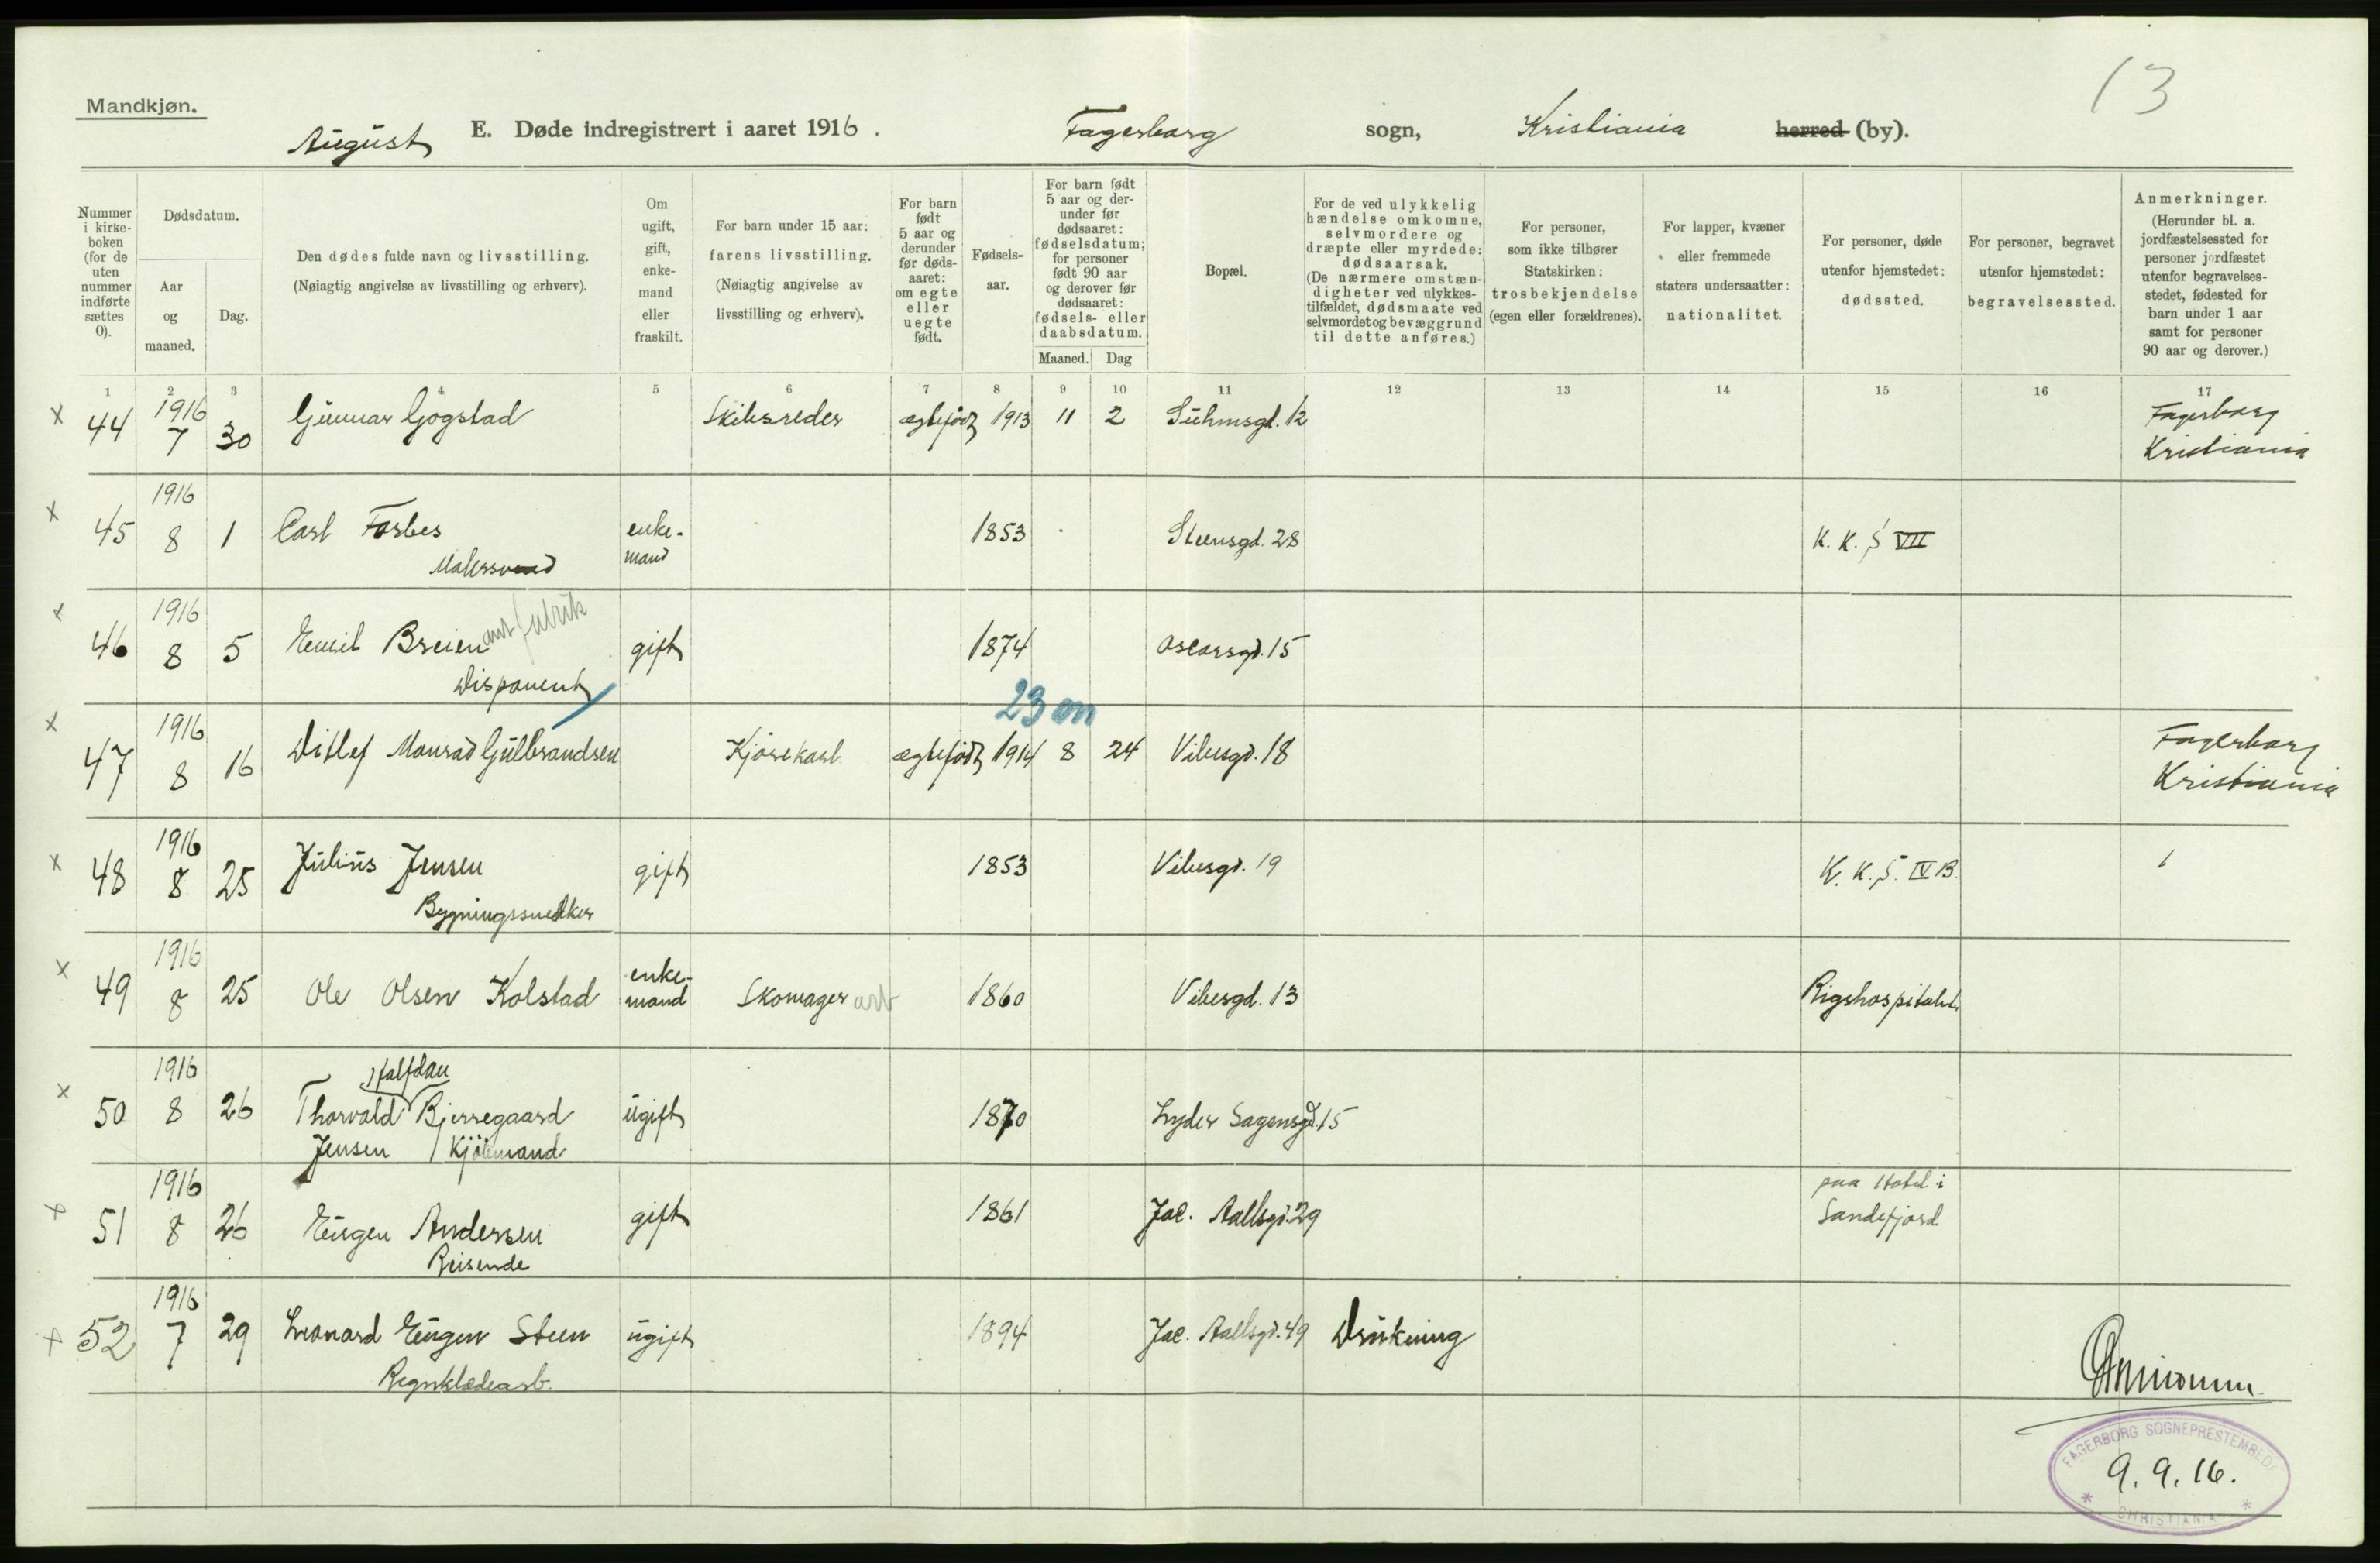 13
Mandkjøn.
August E. Døde indregistrert i aaret 1916. Fagerborg sogn, Kristiania herred (by).
Nummer i kirke-boken (for de uten nummer indførte sættes 0).
Dødsdatum.
Aar og maaned.
Dag.
Den dødes fulde navn og livsstilling.
(Nøiagtig angivelse av livsstilling og erhverv).
Om ugift, gift, enke-mand eller fraskilt.
For barn under 15 aar:
farens livsstilling.
(Nøiagtig angivelse av livsstilling og erhverv).
For barn født 5 aar og derunder før døds-aaret: om egte eller uegte født.
Fødsels-aar.
For barn født 5 aar og der-under før dødsaaret: fødselsdatum; for personer født 90 aar og derover før dødsaaret: fødsels- eller daabsdatum.
Maaned. Dag
Bopæl.
For de ved ulykkelig hændelse omkomne, selvmordere og dræpte eller myrdede: dødsaarsak.
(De nærmere omstæn-digheter ved ulykkes-tilfældet, dødsmaate ved selvmordet og bevæggrund til dette anføres.)
For personer, som ikke tilhører Statskirken: trosbekjendelse (egen eller forældrenes).
For lapper, kvæner eller fremmede staters undersaatter: nationalitet.
For personer, døde utenfor hjemstedet: dødssted.
For personer, begravet utenfor hjemstedet: begravelsessted.
Anmerkninger.
(Herunder bl. a. jordfæstelsessted for personer jordfæstet utenfor begravelses-stedet, fødested for barn under 1 aar samt for personer 90 aar og derover.)
1 2 3 4 5 6 7 8 9 10 11 12 13 14 15 16 17
x 44 1916 7 30 Gunnar Gogstad Skibsreder ægtefødt 1913 11 2 Suhmsgd. 12 Fagerborg
Kristiania
x 45 1916 8 1 Carl Forbes enke- 1853 Steensgd. 28 K. K. S VII
Malersvend mand
x 46 1916 8 5 Emil Breien fabrik gift 1874 Oscarsgd. 15
Disponent
23 m
x 47 1916 8 16 Ditlef Monrad Gulbrandsen Kjørekarl ægtefødt 1914 8 24 Vibesgd. 18 Fagerborg
Kristiania
x 48 1916 8 25 Julius Jensen gift 1853 Vibesgd. 19 K. K. S. IV B.
Bygningssnekker
x 49 1916 8 25 Ole Olsen Kolstad enke-mand Skomager arb 1860 Vibesgd. 13 Rigshospitalet
Halfdan
x 50 1916 8 26 Thorvald Bjerregaard ugift 1870 Lyder Sagensgd. 15
Jensen / Kjøbmand
x 51 1916 8 26 Eugen Andersen gift 1861 Jac. Aallsgd. 29 paa Hotel i
Sandefjord
Reisende
x 52 1916 7 29 Leonard Eugen Steen ugift 1894 Jac. Aallsgd. 49 Drukning
Regnklædearb.
FAGERBORG SOGNEPRESTEMBEDE
9.9.16.
* CHRISTIANIA *